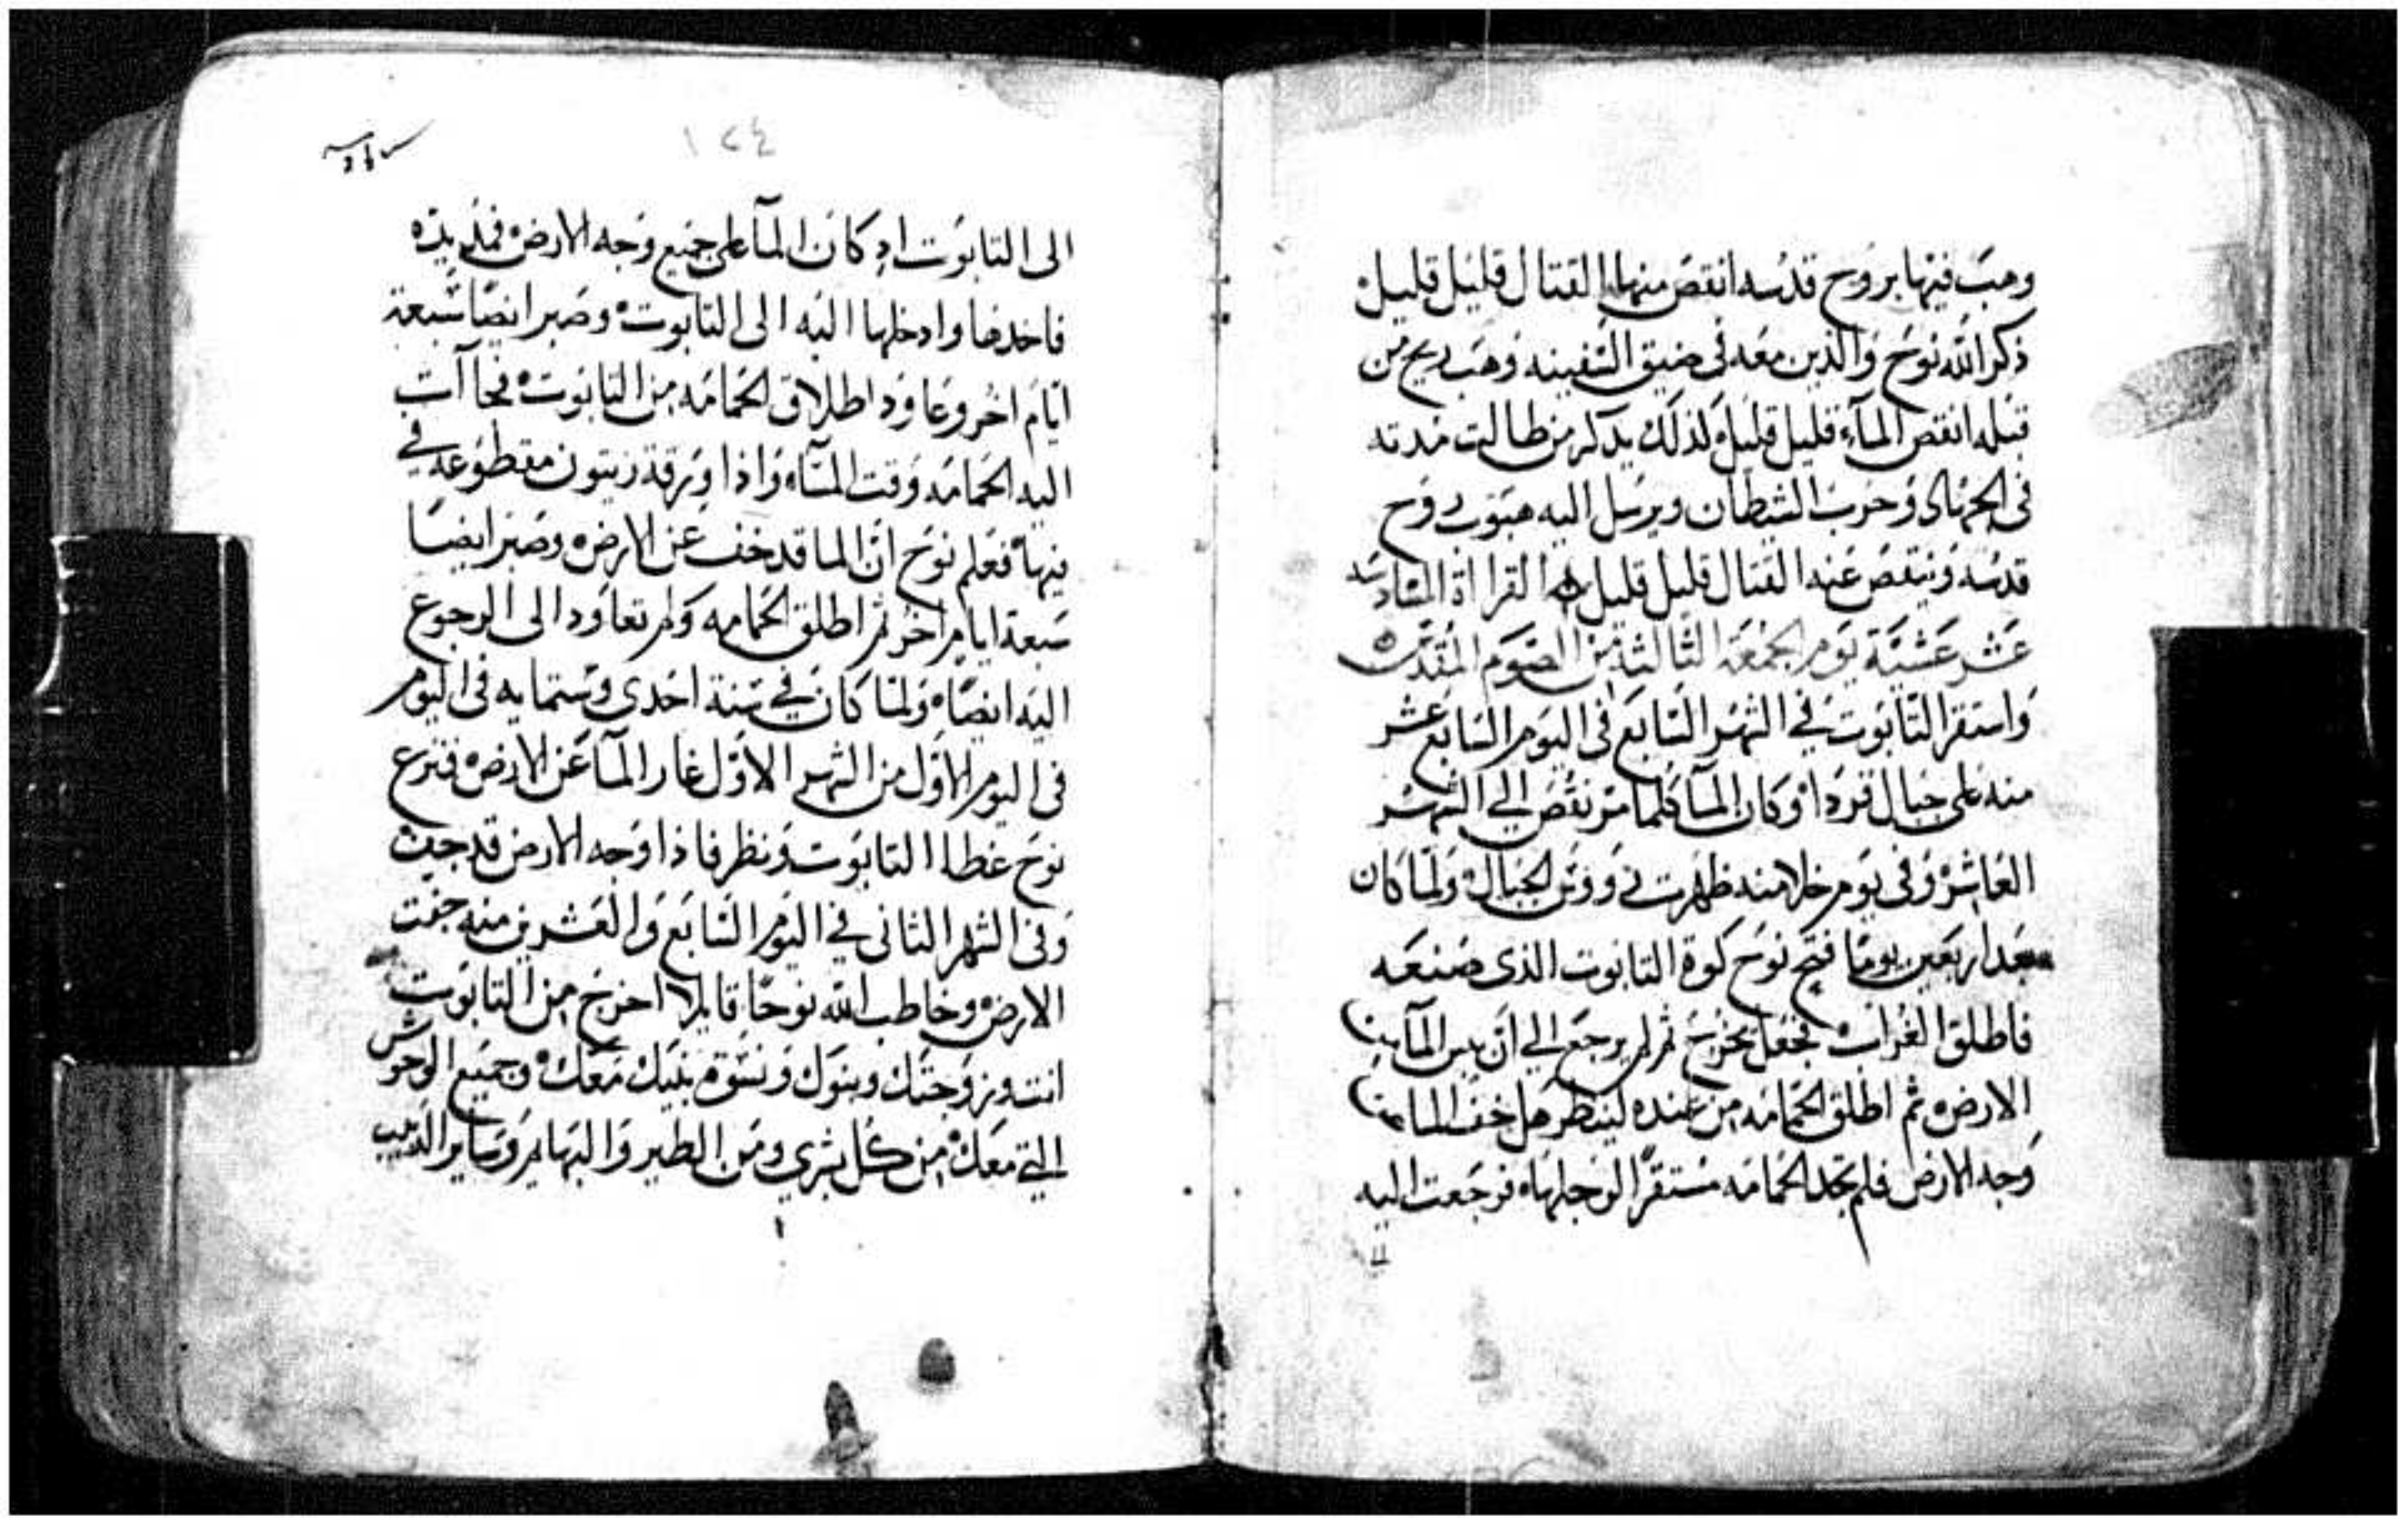 وهبَ فيها بروح قدسه انقصَ منها القتال قليل قليل
ذكر الله نوح والذين معه فى ضيق السفينه وهب ريح من
قبله انقص المآء قليل قليل لذلك يدكر من طالت مدته
فى الجهاد وحرب الشيطان ويرسل اليه هبوب روح
قدسه وينتقص عنه القتال قليل قليل القراة السادسه
عشر عشية يوم الجمعه الثالثه من الصوم المقدس
واستقر التابوت في الشهر السابع فى اليوم السابع عشر
منه على جبال قردا وكان المآ كلما مر نقص الي الشهر
العاشر وفى يوم خلا منه ظهرت رووس الجبال ولما كان
بعد اربعين يومًا فتح نوح كوة التابوت الذى صنعه
فاطلق الغراب فجعل يخرج ثم لم يرجع الي ان يبس المآ من
الارض ثم اطلق الحمامه من عنده لينظر هل خف الما من
وجه الارض فلم تجد الحمامه مستقرًا لرجلها فرجعت اليه
١٢٤
الى التابوت اد كان المآ على جميع وجه الارض فمد يده
فاخدها وادخلها اليه الى التابوت وصبر ايضًا سبعة
ايام اخر وعاود اطلاق الحمامه من التابوت فجآات
اليه الحمامه وقت المسآء واذا ورقة زيتون مقطوعه في
فيها فعلم نوح ان الما قد خف عن الارض وصبر ايضًا
سبعة ايام اخر ثم اطلق الحمامه ولم تعاود الى الرجوع
اليه ايضًا ولما كان في سنة احدى وستمايه فى اليوم
فى اليوم الاول من الشهر الاول غار المآ عن الارض فنزع
نوح غطا التابوت ونظر فاذا وجه الارض قد جف
وفى الشهر الثانى في اليوم السابع والعشرين منه جفت
الارض وخاطب الله نوحًا قايلا اخرج من التابوت
انت وزوجتك وبنوك ونسوة بنيك معك وجميع الوحوش
التي معك من كل بشري ومن الطير والبهايم وساير الدبيب